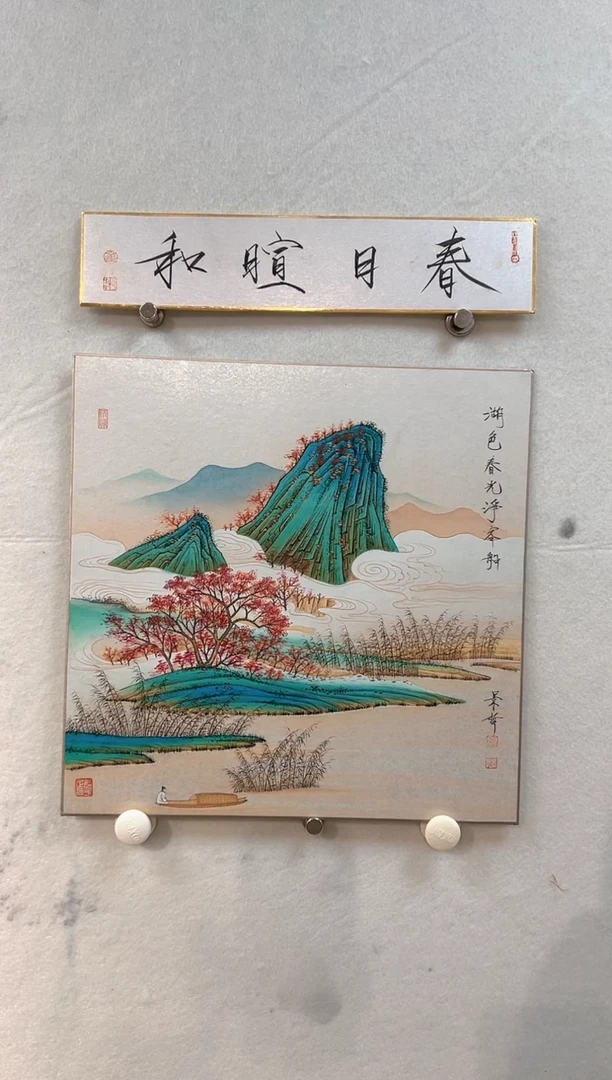 春日暄和
湖色春光净客船